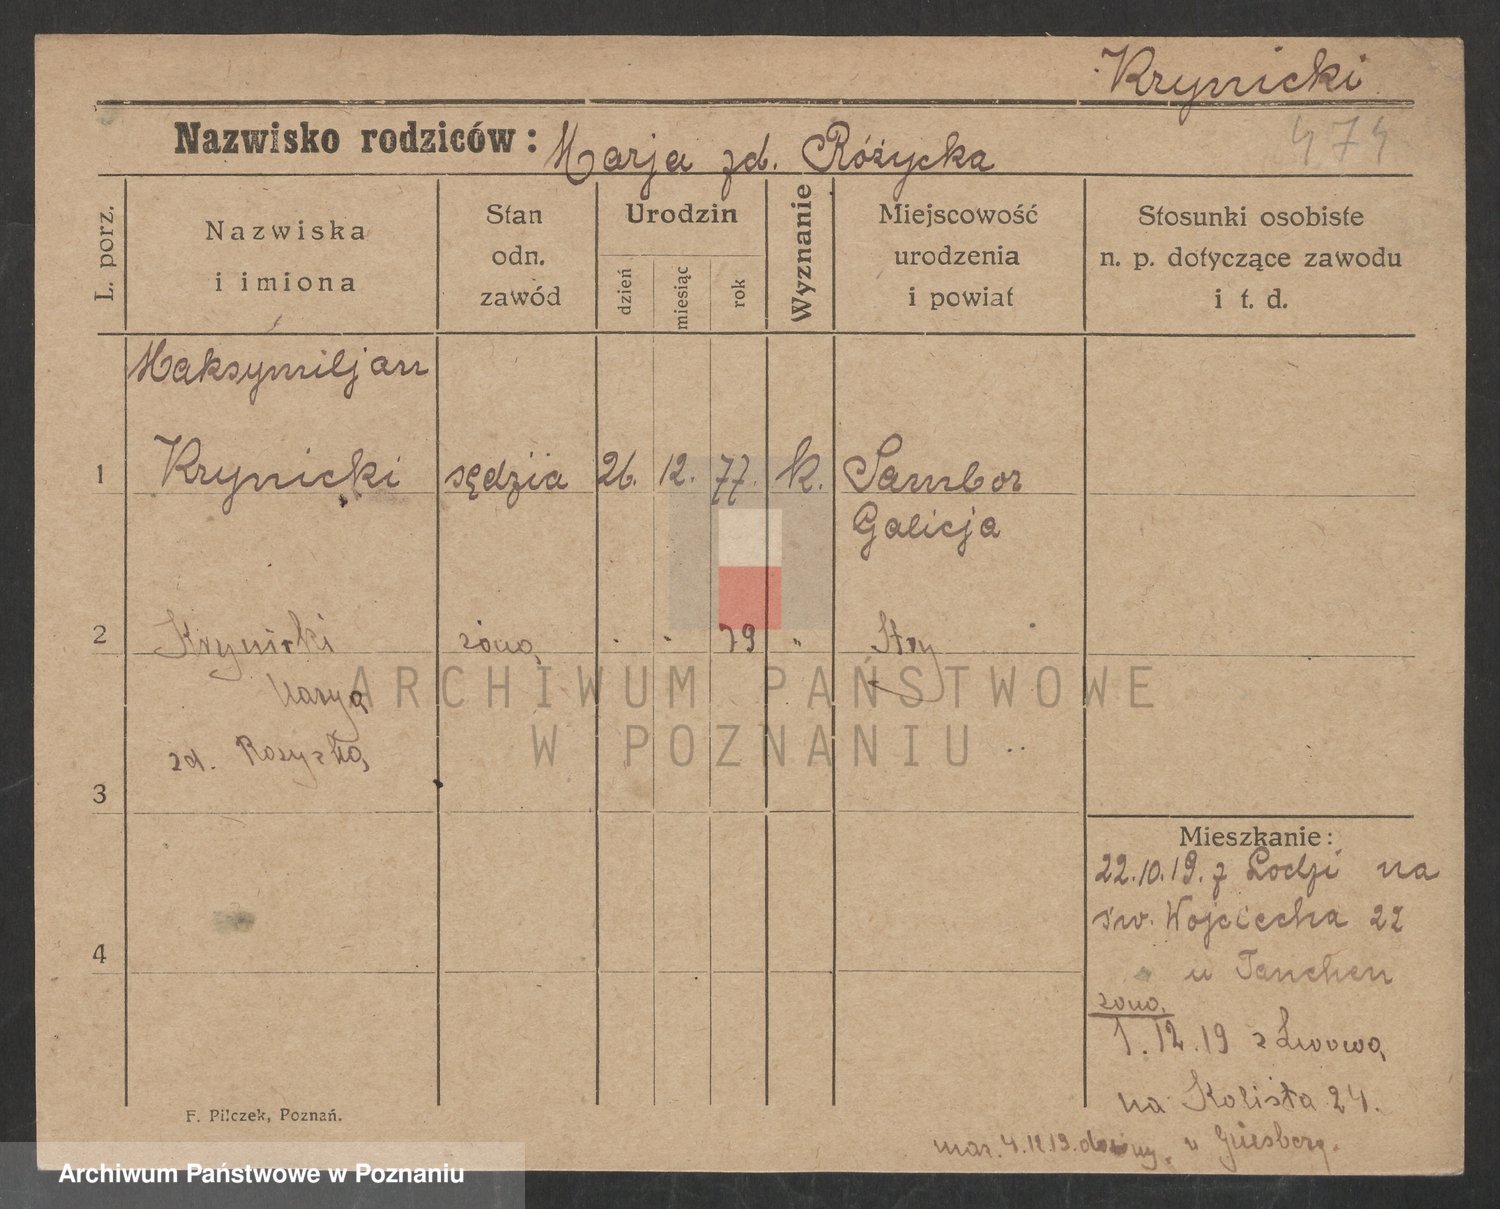 Krynicki
474
Nazwisko rodziców: Marja zd. Różycka
L. porz.
Nazwiska
i imiona
Stan
odn.
zawód
Urodzin
dzień
miesiąc
rok
Wyznanie
Miejscowość
urodzenia
i powiat
Stosunki osobiste
n. p. dotyczące zawodu
i t. d.
Maksymiljan
1 Krynicki sędzia 26. 12. 77. k. Sambor
Galicja
2 Krynicki żona . . 79 " Stry
Marya
zd. Rozycka
3
4
Mieszkanie:
22.10.19. z Łodzi na
św. Wojciecha 22
u Tanchen
żona
1.12.19 z Lwowa
na 24.
4.12.19. u
F. Pilczek, Poznań.
ARCHIWUM PAŃSTWOWE
W POZNANIU
Archiwum Państwowe w Poznaniu